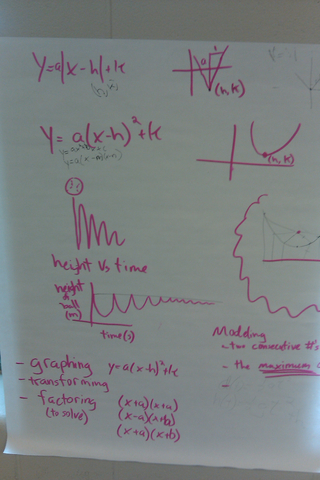 y=a|x-h|+k
(h,k)
(h, k)
y= a(x-h)²+k
y=a(x-m)(x-n)
(h,k)
height vs time
height
of
ball
(m)
time(s)
Modeling
- two consecutive #'s
- the maximum
- graphing y=a(x-h)²+k
- transforming
- factoring (x+a)(x+a)
(to solve) (x-a)(x+a)
(x+a)(x+b)